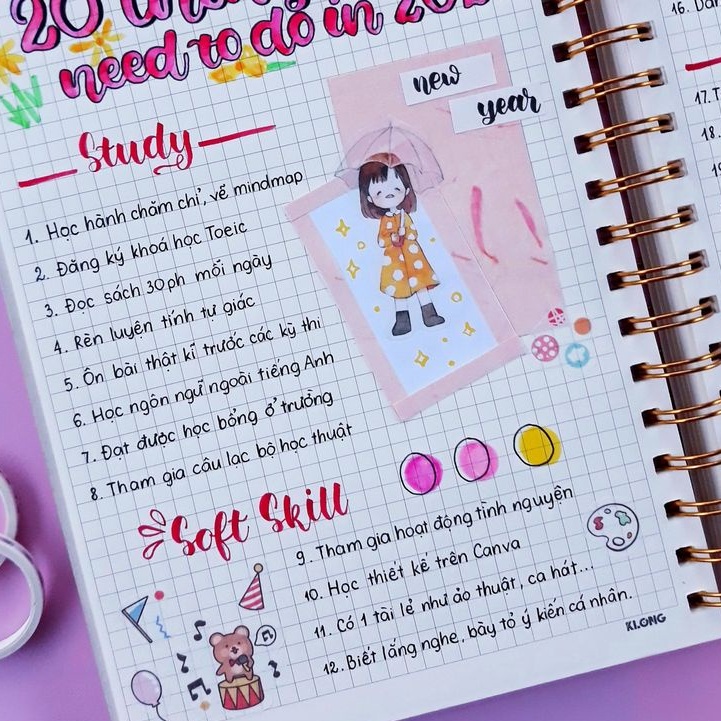 20
need to do in 202
new
year
Study
1. Học hành chăm chỉ, vẽ mindmap
2. Đăng ký khoá học Toeic
3. Đọc sách 30ph mỗi ngày
4. Rèn luyện tính tự giác
5. Ôn bài thật kĩ trước các kỳ thi
6. Học ngôn ngữ ngoài tiếng Anh
7. Đạt được học bổng ở trường
8. Tham gia câu lạc bộ học thuật
Soft Skill
9. Tham gia hoạt động tình nguyện
10. Học thiết kế trên Canva
11. Có 1 tài lẻ như ảo thuật, ca hát...
12. Biết lắng nghe, bày tỏ ý kiến cá nhân.
KLONG
16.
17.
18.